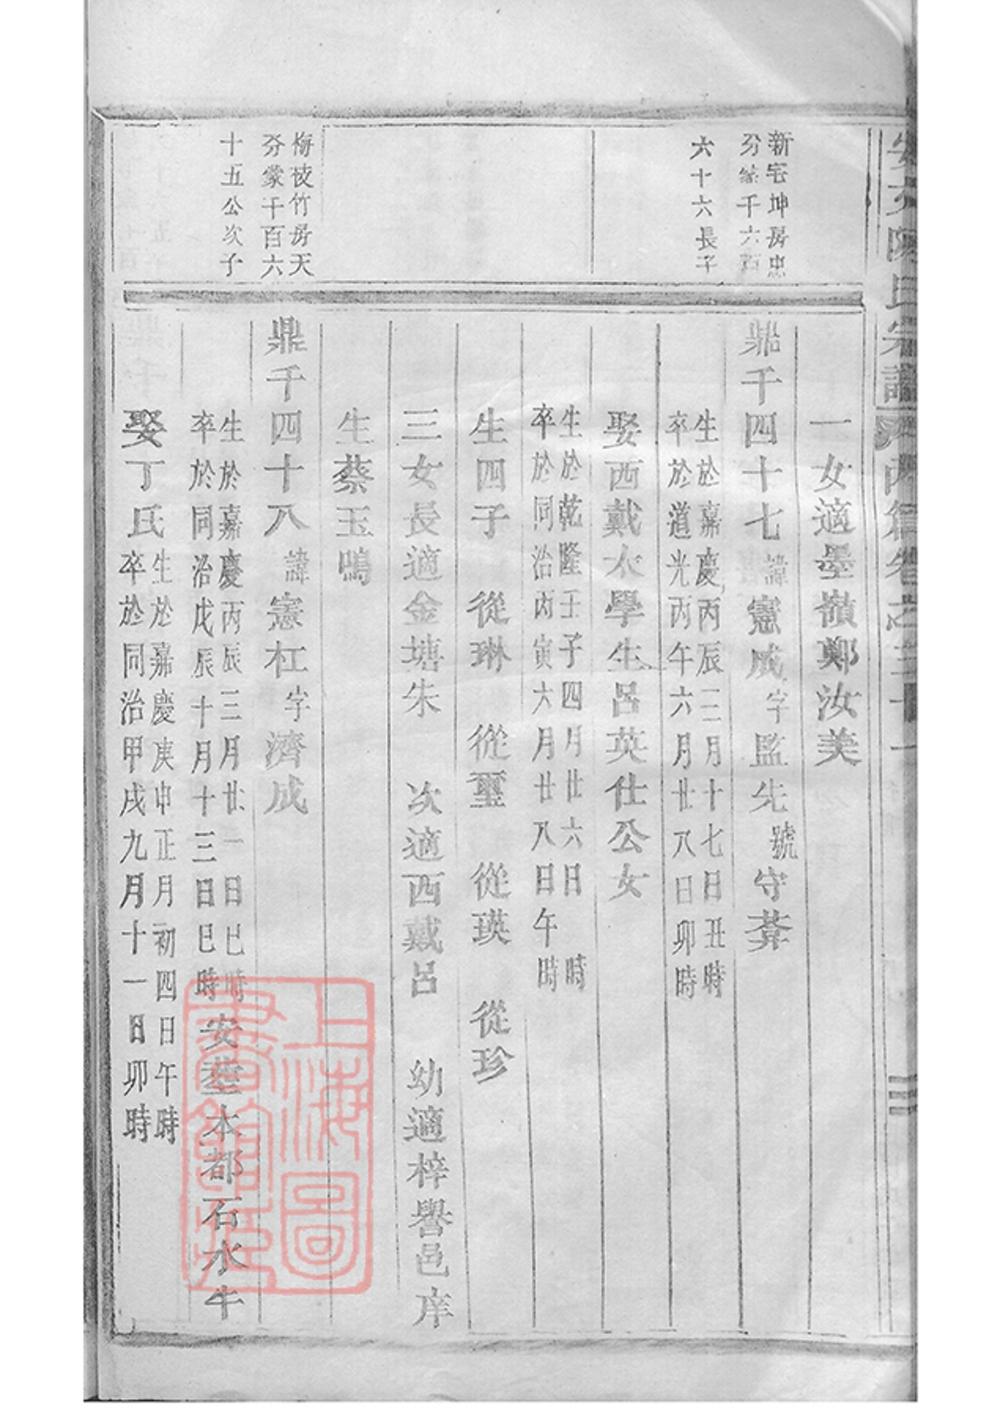 安文陳氏宗譜 丙集卷之三十一
新宅坤房忠
分 千六百
六十六長子
梅枝竹房天
分蒙千百六
十五公次子
一女適墨嶺鄭汝美
鼎千四十七諱憲成字監先號守莽
生於嘉慶丙辰二月十七日丑時
卒於道光丙午六月廿八日卯時
娶西戴太學生呂英仕公女
生於乾隆壬子四月廿六日 時
卒於同治丙寅六月廿八日午時
生四子 從琳 從璽 從瑛 從珍
三女長適金塘朱 次適西戴呂 幼適梓譽邑庠
生蔡玉鳴
鼎千四十八諱憲杠字濟成
生於嘉慶丙辰三月廿一日巳時
卒於同治戊辰十月十三日巳時
安塟本都石水牛
娶丁氏
生於嘉慶庚申正月初四日午時
卒於同治甲戌九月十一日卯時
上海圖書館藏